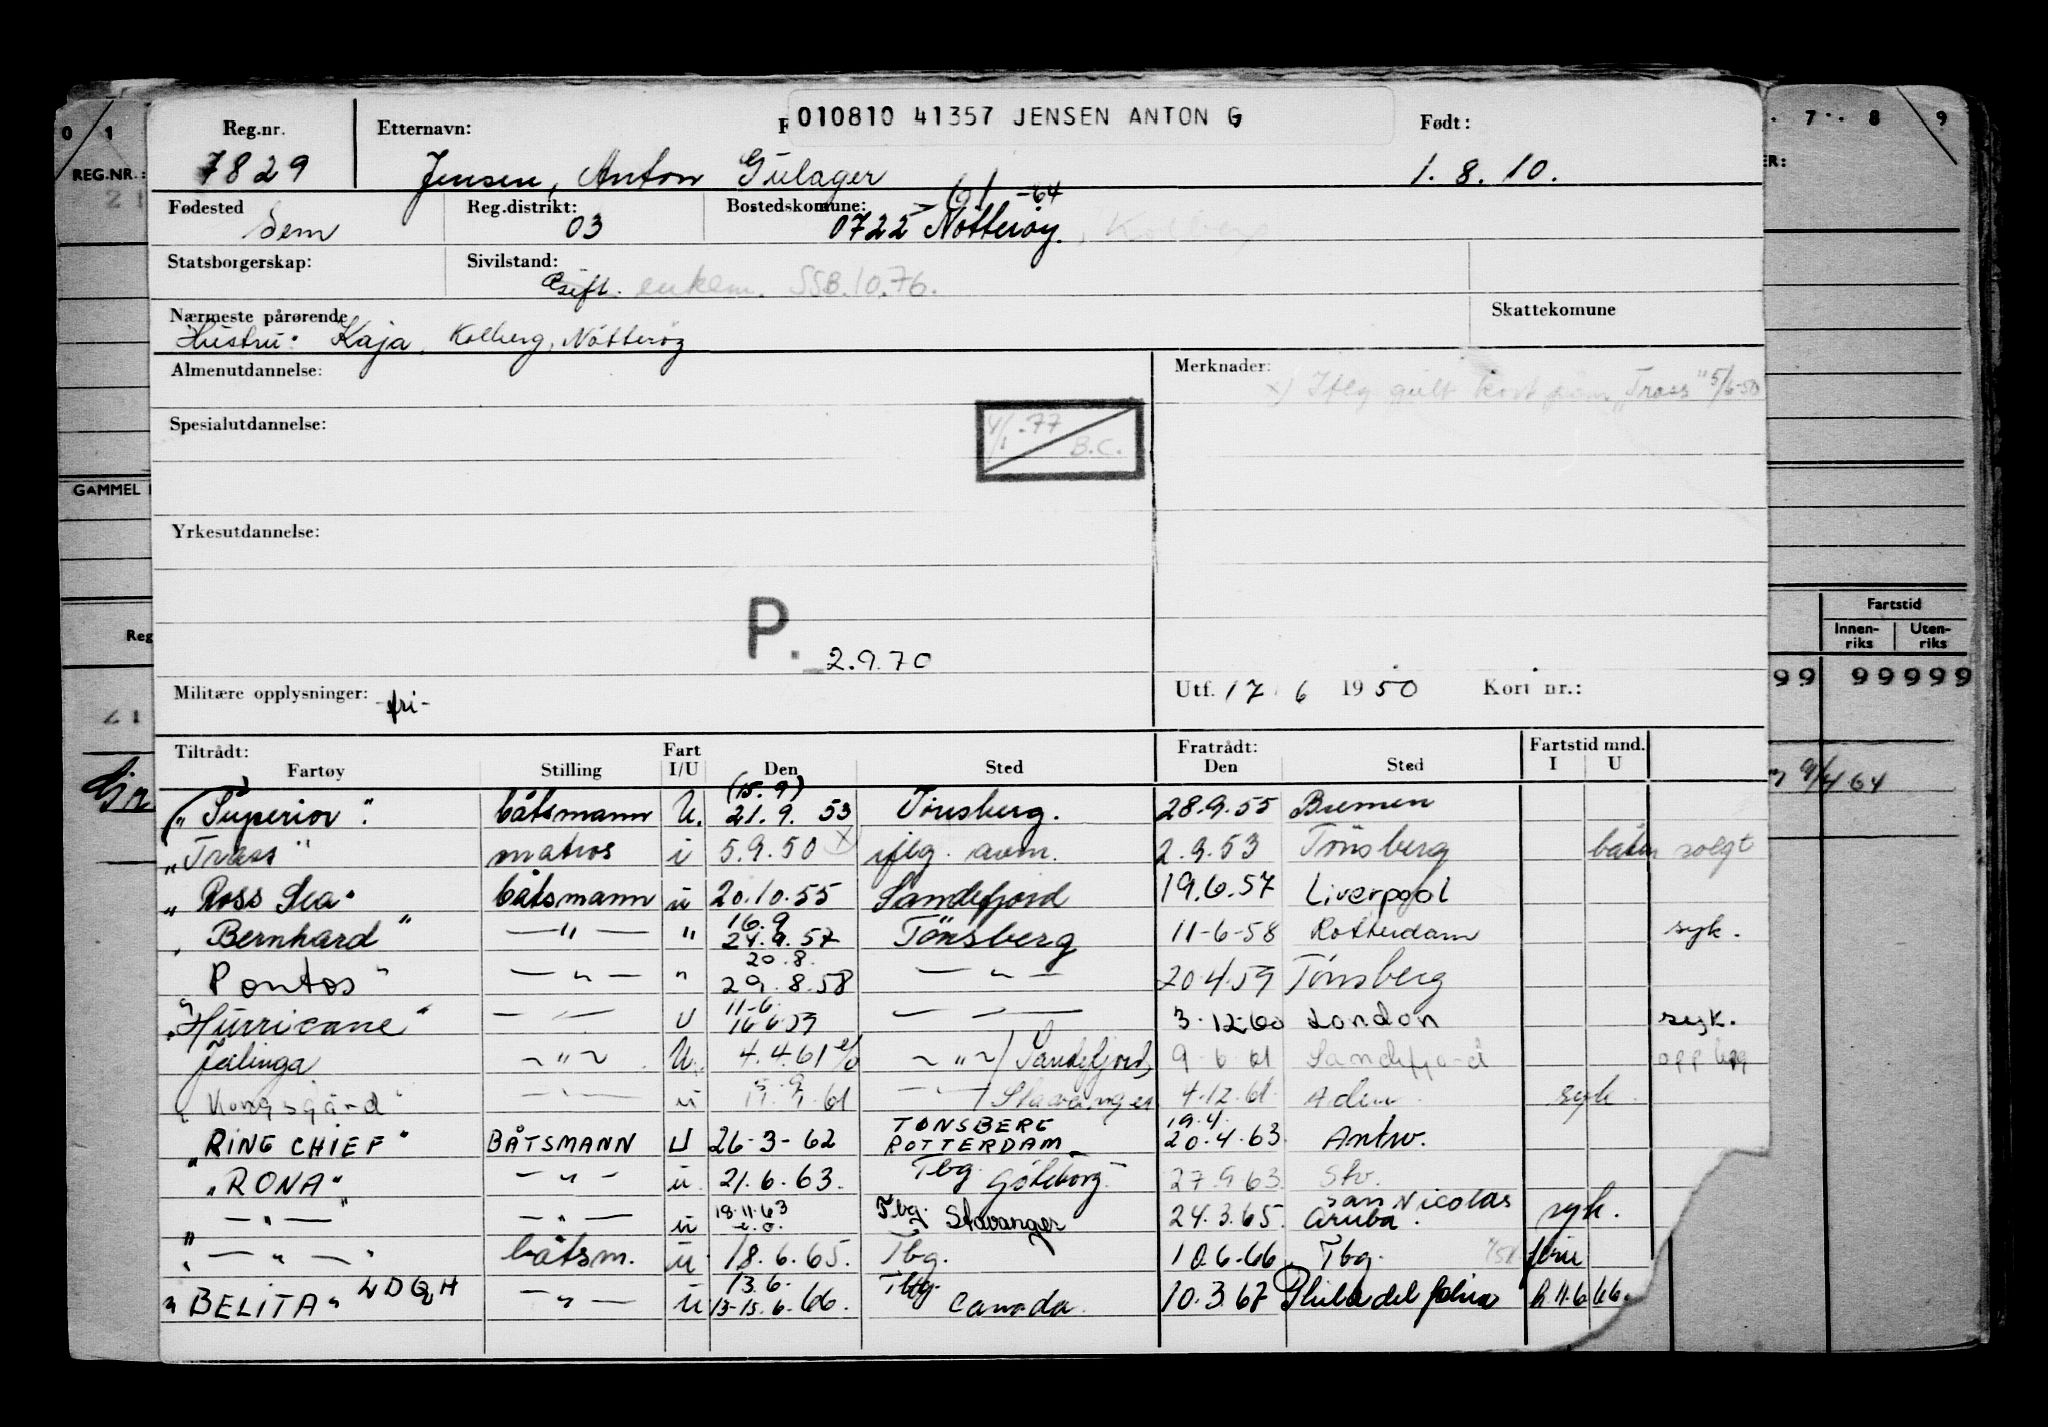 010810 41357 JENSEN ANTON G
Reg.nr. Etternavn: F Født:
7829 Jensen, Anton Gulager 1. 8. 10.
Fødested Reg.distrikt: Bostedskomune: 1/1-64
Sem 03 0722 Nøtterøy, Kolberg
Statsborgerskap: Sivilstand:
Gift. enkem. SSB.10.76.
Nærmeste pårørende Skattekomune
Hustru: Kaja, Kolberg, Nøtterøy
Almenutdannelse: Merknader:
x) Iflg gult kort påm. "Trass" 5/6-50
Spesialutdannelse: 4/1-77 B.C.
Yrkesutdannelse:
P. 2.9.70
Militære opplysninger: -fri- Utf. 17/6 1950 Kort nr.:
Tiltrådt: Fart Fratrådt: Fartstid mnd.
Fartøy Stilling I/U Den Sted Den Sted I U
(15.9)
"Superior". båtsmann U. 21.9.53 Tønsberg. 28.9.55 Bremen
"Trass" matros i 5.9.50 x iflg. avm. 2.9.53 Tönsberg båten solgt
"Ross Sea" båtsmann u 20.10.55 Sandefjord 19.6.57 Liverpool
16.9
"Bernhard" —"— " 24.9.57 Tönsberg 11-6-58 Rotterdam syk.
20.8.
"Pontos" —"— " 29.8.58 —"— 20.4.59 Tönsberg
11-6
"Hurricane" —"— U 16.6.59 —"— 3-12-60 London syk.
Jalinga —"— U. 4.4.61 e/o —"—/Sandefjord, 9-6-61 Sandefjord opplag
"Kongsgård" —"— u 61 —"—/Stavanger 4.12.61. Aden. syk.
TØNSBERG 19.4.
"RING CHIEF" BÅTSMANN U 26-3-62 ROTTERDAM 20.4.63. Antw.
"RONA" —"— u. 21.6.63. Tbg. Göteborg. 27.9.63. Stv.
18.11.63 San Nicolas
—"— —"— u e.o. Tbg. Stavanger 24.3.65. Aruba. syk.
"—"—" båtsm. u. 18.6.65. Tbg. 10.6-66. Tbg. ferie
13.6.
"BELITA" LDQH —"— u 13-15.6.66. Tbg. Canada. 10.3.67 Philadelphia h.11.6.66.
0 1
REG.NR.:
21
GAMMEL
Reg
21
7 8 9
ER:
Fartstid
Innen-riks Uten-riks
99 99999
9/4 64